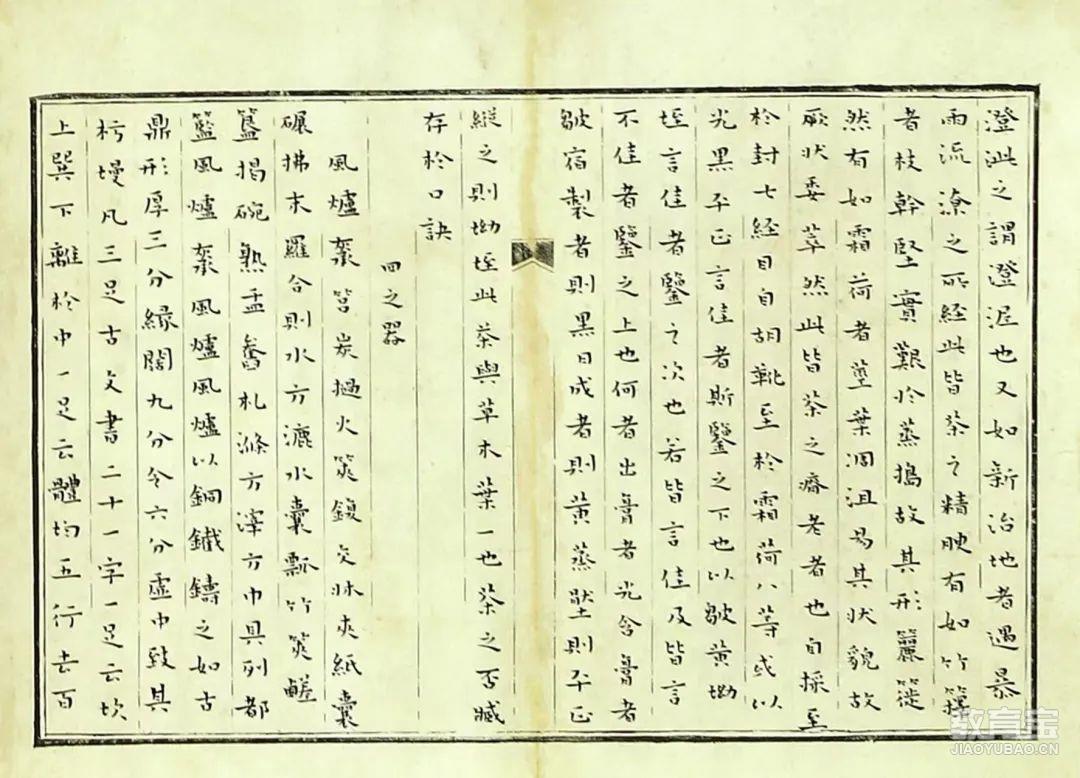 澄泚之謂澄泥也又如新治地者遇暴
雨流潦之所經此皆茶之精腴有如竹籜
者枝幹堅實艱於蒸搗故其形籭簁
然有如霜荷者莖葉凋沮易其狀貌故
厥狀委萃然此皆茶之瘠老者也自採至
於封七經目自胡靴至於霜荷八等或以
光黑平正言佳者斯鑒之下也以皺黃坳
垤言佳者鑒之次也若皆言佳及皆言
不佳者鑒之上也何者出膏者光含膏者
皺宿製者則黑日成者則黃蒸壓則平正
縱之則坳垤此茶與草木葉一也茶之否臧
存於口訣
四之器
風爐灰筥炭檛火筴鍑交牀夾紙囊
碾拂末羅合則水方漉水囊瓢竹筴鹺
簋揭碗熟盂畚札滌方滓方巾具列都
籃風爐灰風爐風爐以銅鐵鑄之如古
鼎形厚三分緣闊九分令六分虛中致其
杇墁凡三足古文書二十一字一足云坎
上巽下離於中一足云體均五行去百
教育宝
JIAOYUBAO.CN